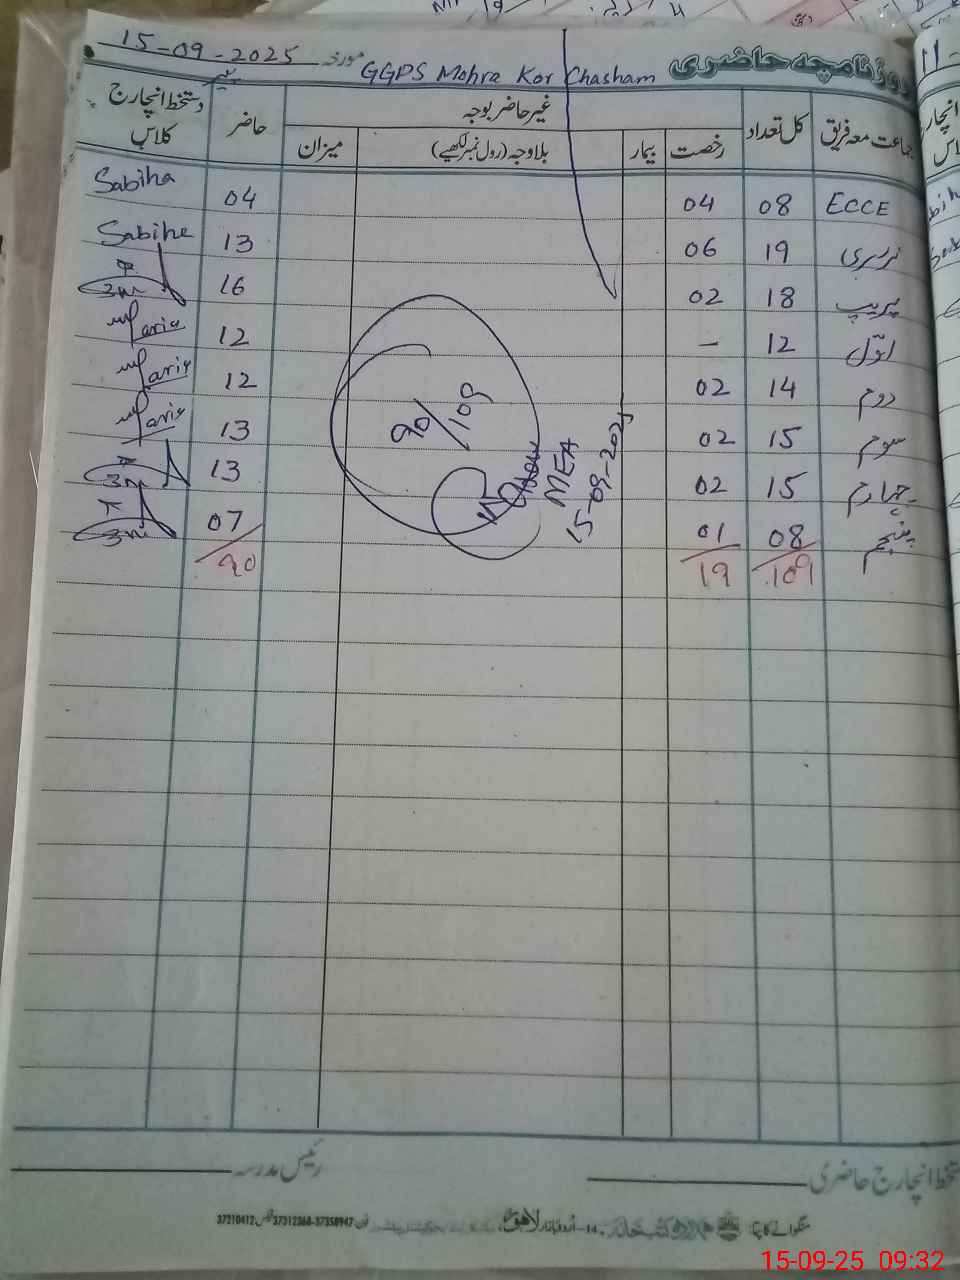 روزنامچہ حاضری GGPS Mohra Kor Chasham مورخہ 15-09-2025
پیر
جماعت معہ فریق کل تعداد غیر حاضر بوجہ حاضر دستخط انچارج کلاس
رخصت بیمار بلاوجہ (رول نمبر لکھیے) میزان
ECCE 08 04 04 Sabiha
نرسری 19 06 13 Sabiha
پریپ 18 02 16
اوّل 12 – 12 Maria
دوم 14 02 12 Maria
سوم 15 02 13 Maria
چہارم 15 02 13
پنجم 08 01 07
109 19 90
90/109
MEA
15-09-2025
دستخط انچارج حاضری رئیس مدرسہ
منگوانے کا پتہ 14-اردو بازار لاہور فون 37312368-37358947 فیکس 37210412
15-09-25 09:32